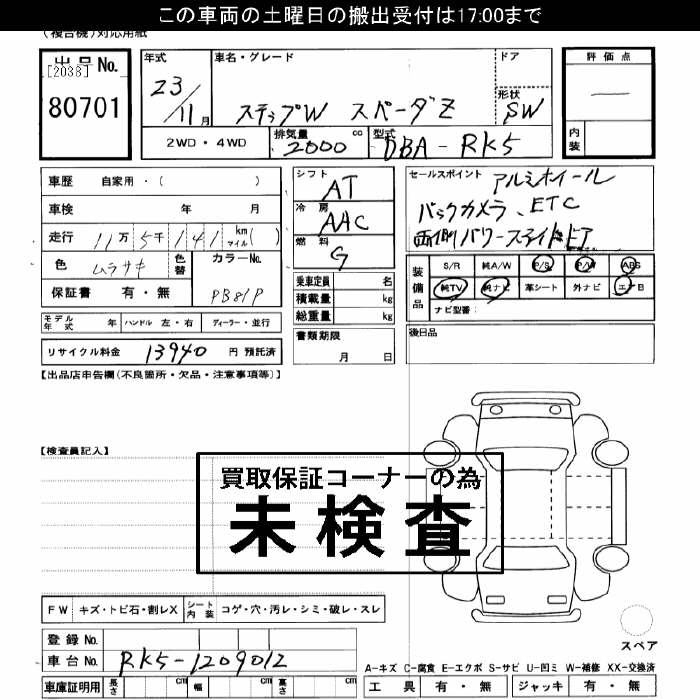 この車両の土曜日の搬出受付は17:00まで
(複合機)対応用紙
出品No.
[2038]
80701
年式
23/11月
車名・グレード
ステップW スパーダZ
ドア
形状
SW
評価点
内装
2WD・4WD
排気量
2000
cc
型式
DBA-RK5
車歴 自家用・( )
車検 年 月
走行 11万 5千 141 km マイル( )
色 ムラサキ
色替
カラーNo.
PB81P
保証書 有・無
モデル年式 年 ハンドル 左・右 ディーラー・並行
リサイクル料金 13940 円 預託済
シフト AT
冷房 AAC
燃料 G
乗車定員 名
積載量 kg
総重量 kg
書類期限
月 日
セールスポイント アルミホイール
バックカメラ、ETC
両側パワースライドドア
装備品
S/R 純A/W P/S P/W ABS
純TV 純ナビ 革シート 外ナビ エアB
ナビ型番:
後日品
【出品店申告欄(不良箇所・欠品・注意事項等)】
【検査員記入】
買取保証コーナーの為
未検査
FW キズ・トビ石・割レX
シート内装 コゲ・穴・汚レ・シミ・破レ・スレ
登録No.
車台No. RK5-1209012
車庫証明用 長さ cm 幅 cm 高さ cm
スペア
A-キズ C-腐食 E-エクボ S-サビ U-凹ミ W-補修 XX-交換済
工具 有・無 ジャッキ 有・無